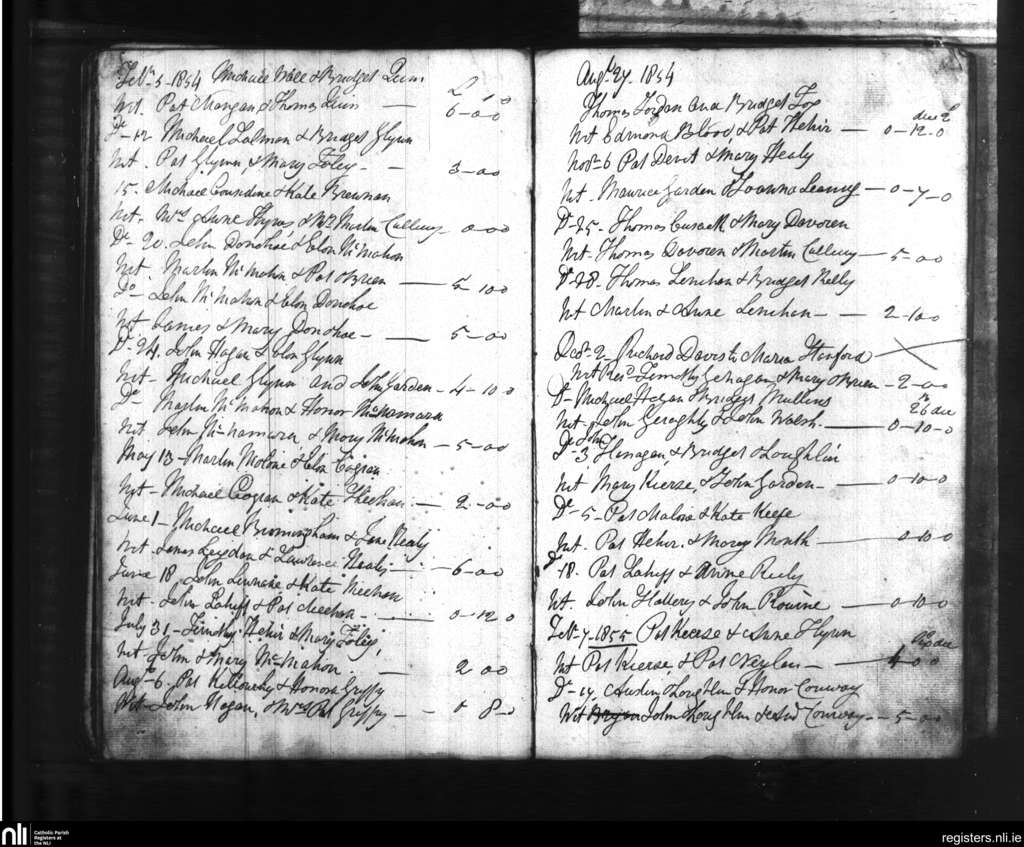 Feby 5 - 1854 Michael Wall & Bridget Quin
Wit. Pat Mangan & Thomas Quin — 6-0-0
Do - 12 Michael & Bridget Glynn
Wit. Pat Glynn & Mary Foley - — 3-0-0
15. Michael Considine & Kate Brennan
Wit. Mrs & Anne & Mr Martin Cullen - 0-0-0
Do. 20. John Donohoe & Elon McMahon
Wit. Martin McMahon & Pat OBrien — 4-10-0
Do - John McMahon & Elon Donohoe
Wit James & Mary Donohoe - — 5-0-0
Do. 24. John Hagan & Elon Glynn
Wit - Michael Glynn and John Garden - 4-10-0
Do. Martin McMahon & Honor McNamara
Wit. John McNamara & Mary McMahon - 5-0-0
May 13 - Martin Molone & Elon Cogran
Wit - Michael Cogran & Kate Meehan - 2-0-0
June 1 - Michael Bromingham & Jane Healy
Wit. James Leydan & Lawrence Healy - 6-0-0
June 18. John & Kate Meehan
Wit - John Lahiff & Pat Meehan - 0-12-0
July 31 - Timothy Hehir & Mary Foley,
Wit John & Mary McMahon. — 2-0-0
Augt 6. Pat Killourhy & Honora Griffy
Wit - John Hogan, & Mrs Pat Griffy - 0 8-0
Augt 27. 1854
Thomas Jordan and Bridget Fox
Wit Edmond Blood, & Pat Hehir — 0-12-0
Novr - 6 Pat Devit & Mary Healy
Wit - Maurice Garden & Joanna — 0-7-0
Do - 25 - Thomas Cusack & Mary Davoren
Wit - Thomas Davoren & Martin Cullen — 5-0-0
Do 28. Thomas Lenehan & Bridget Kelly
Wit Martin & Anne Lenehan - — 2-10-0
Decr - 2 - Richard Davis to Maria Stanford
Wit Revd Timothy Gehagan & Mary OBrien - 2-0-0
Do - Michael Hogan & Bridget Mullens
26 due
Wit - John Geraghty & John Walsh. — 0-10-0
Do - 3. John Flanagan, & Bridget OLoughlin
Wit Mary Kierse, & John Garden - — 0-10-0
Do - 5 - Pat Malone & Kate Keefe
Wit. Pat Hehir. & Mary — 0-10-0
Do 18. Pat Lahiff & Anne
Wit. John & John Rouine — 0-10-0
Feby - 7 - 1855 Pat Keerse & Anne Flynn
Wit Pat Kierse, & Pat Neylon - — 4-0-0
Do - 17 Austin OLoughlin & Honor Conway
Wit John OLoughlin & Conway - 5-0-0
nli Catholic Parish
Registers at
the NLI
registers.nli.ie